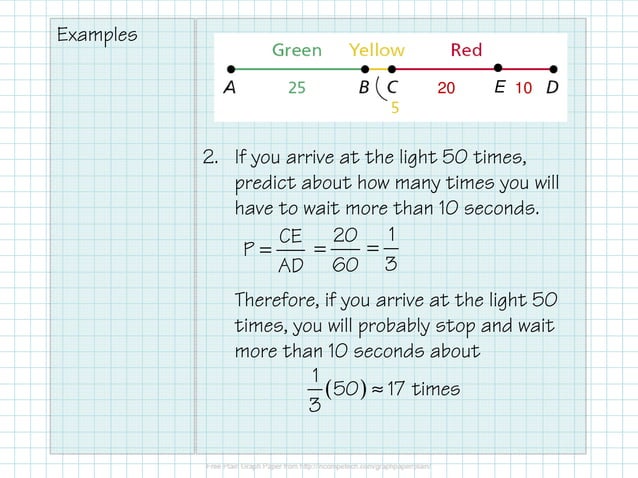 Examples
Green Yellow Red
A 25 B C 20 E 10 D
5
2. If you arrive at the light 50 times,
predict about how many times you will
have to wait more than 10 seconds.
P = CE/AD = 20/60 = 1/3
Therefore, if you arrive at the light 50
times, you will probably stop and wait
more than 10 seconds about
1/3 (50) ≈ 17 times
Free Plain Graph Paper from http://incompetech.com/graphpaper/plain/